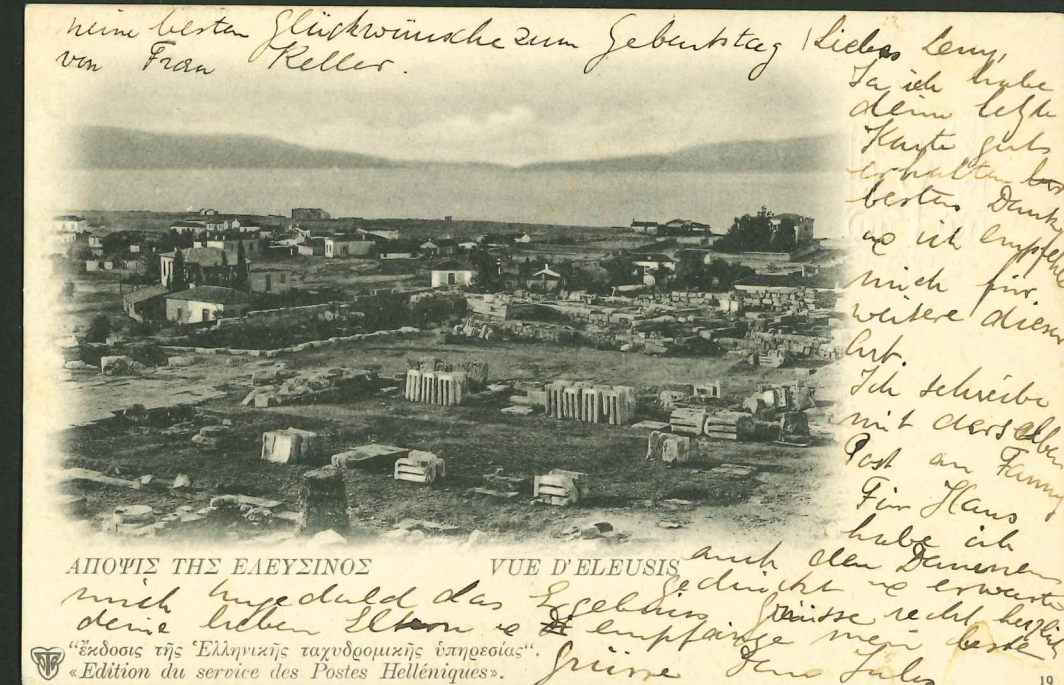 meine besten Glückwünsche zum Geburtstag
von Frau Keller.
Liebes Leny,
Ja ich habe
deine letzte
Karte gut
erhalten
besten Dank
& ich empfehle
mich für
weitere dieser
Art.
Ich schreibe
mit derselben
Post an Fanny
Für Hans
habe ich
auch den Daumen
gedrückt & erwarte
mich Ungeduld das Ergebnis
Grüsse recht herzlich
deine lieben Eltern & empfange mein beste
Grüsse Dein Jules
ΑΠΟΨΙΣ ΤΗΣ ΕΛΕΥΣΙΝΟΣ
VUE D'ELEUSIS
“ἔκδοσις τῆς Ἑλληνικῆς ταχυδρομικῆς ὑπηρεσίας“.
«Edition du service des Postes Helléniques».
19